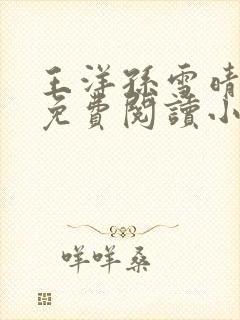 王洋孫雪晴
免費閱讀小
咩咩桑